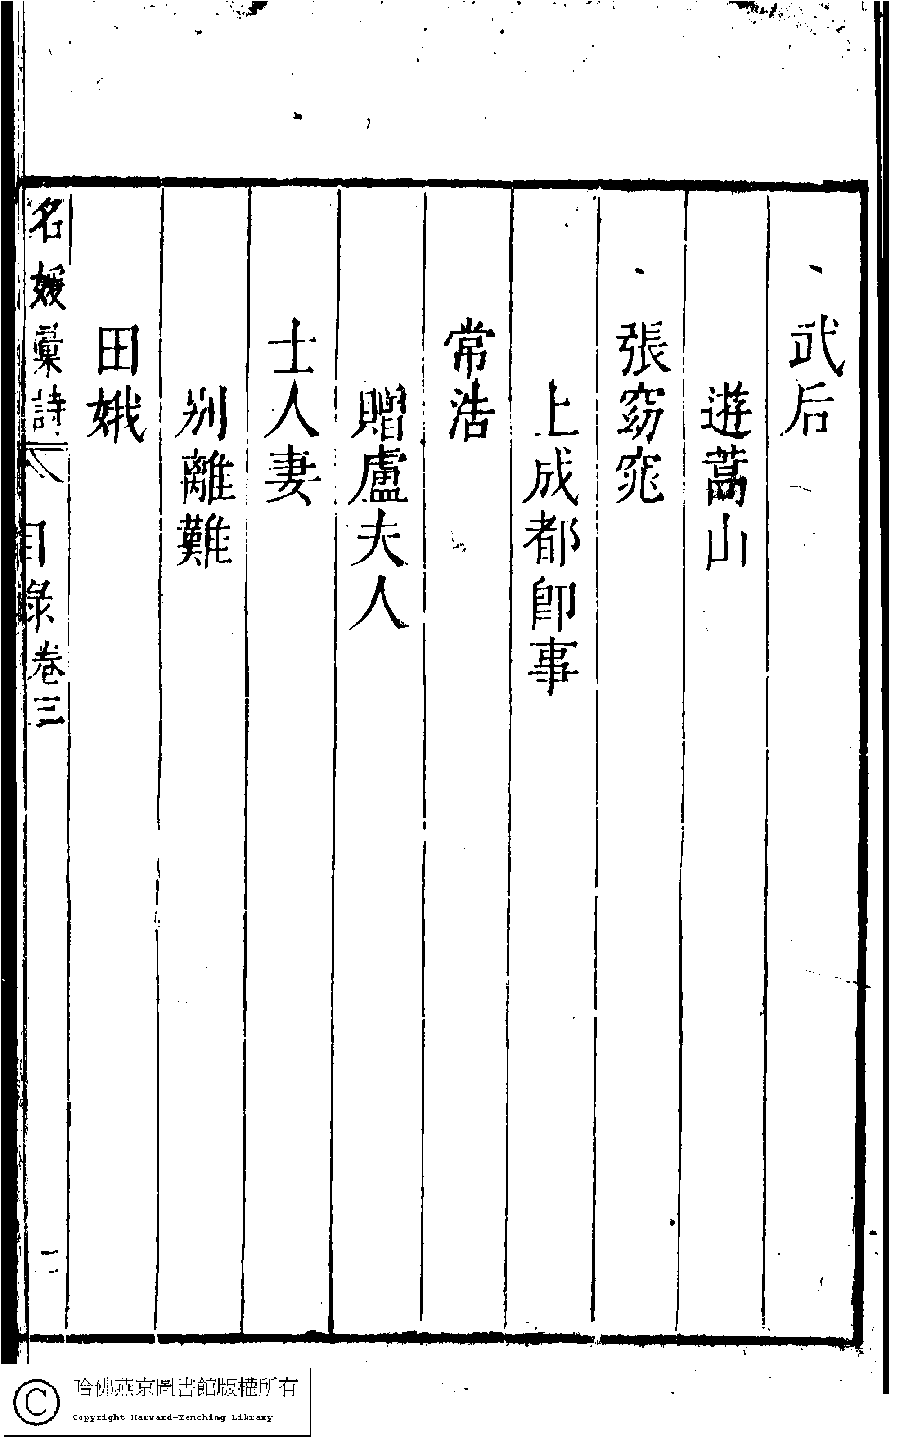 武后
遊嵩山
張窈窕
上成都卽事
常浩
贈盧夫人
士人妻
別離難
田娥
名媛彙詩
目錄卷三
二
哈佛燕京圖書館版權所有
Copyright Harvard-Yenching Library